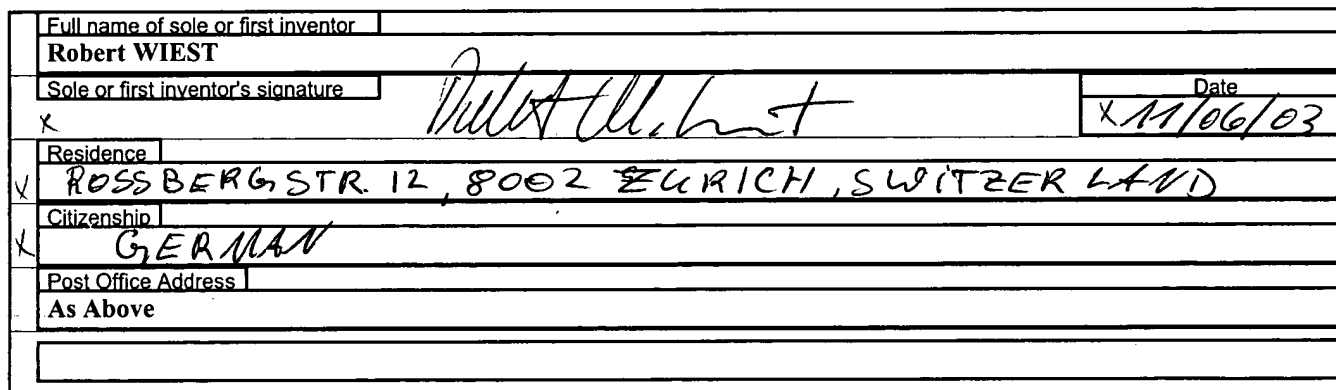 Full name of sole or first inventor
Robert WIEST
Sole or first inventor's signature
Date
x
x 11/06/03
Residence
x ROSSBERGSTR. 12, 8002 ZURICH, SWITZERLAND
Citizenship
x GERMAN
Post Office Address
As Above